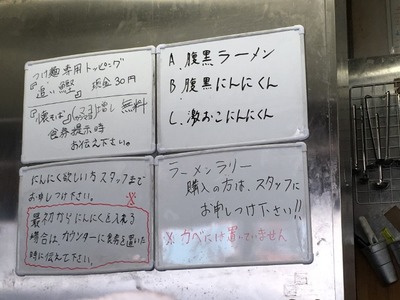 つけ麺専用トッピング
『追い鰹』 現金30円
増し 無料
食券提示時
お伝え下さい。
A. 腹黒ラーメン
B. 腹黒にんにくん
C. 激おこにんにくん
にんにく欲しい方スタッフまで
お申しつけ下さい。 ※
最初からにんにくを入れる
場合は、カウンターに食券を置いた
時に伝えて下さい。
ラーメンラリー
購入の方は、スタッフに
お申しつけ下さい!!
※ かべには置いていません